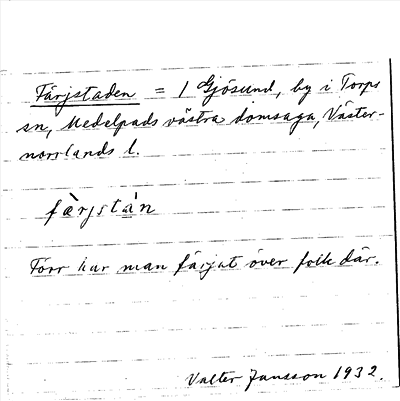 Färjstaden = 1 Gjösund, by i Torps
sn, Medelpads västra domsaga, Väster-
norrlands l.
fàrjstàn
Förr har man färjat över folk där.
Valter Jansson 1932.